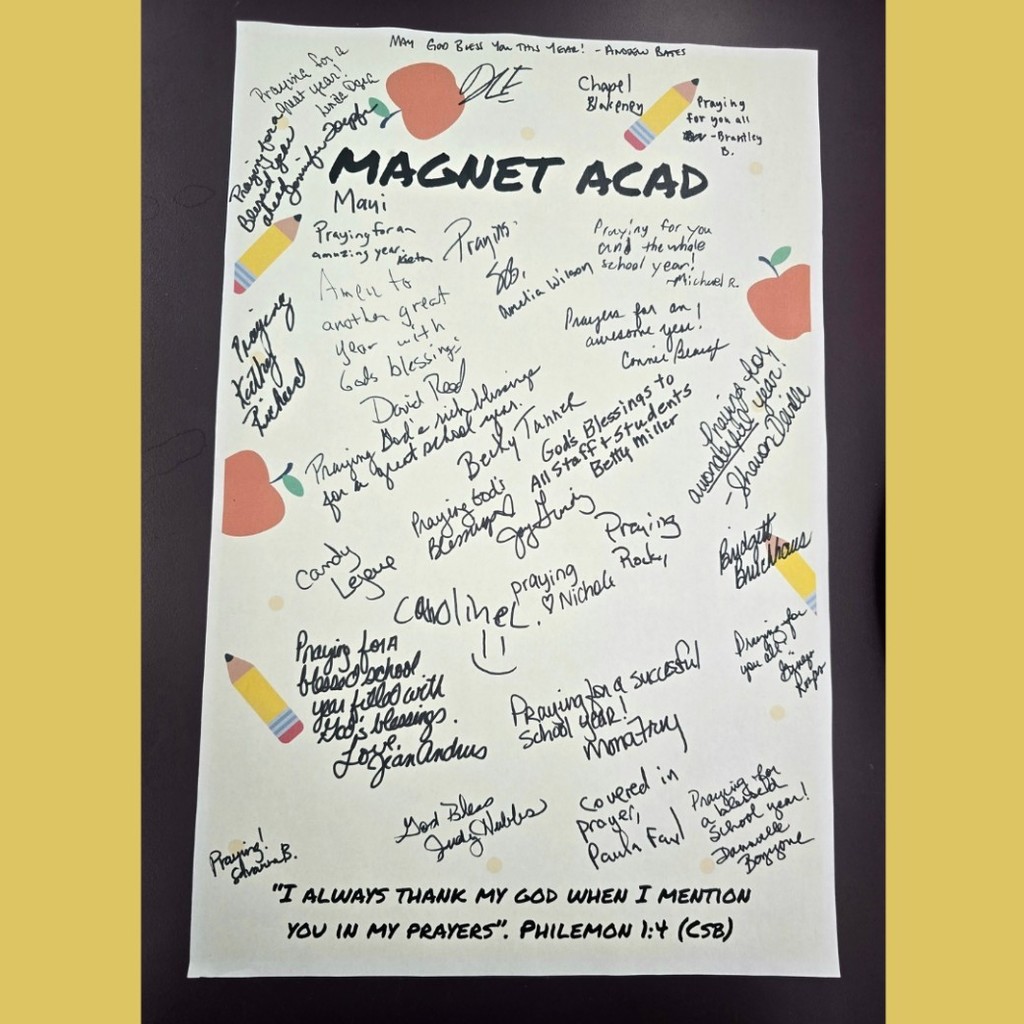 MAY GOD BLESS YOU THIS YEAR! - ANDREW BATES
Praying for a
great year!
Linda
Praying for a
Blessed year
ahead
Jennifer
Chapel
Blakeney
Praying
for you all
-Brantley
B.
MAGNET ACAD
Praying for an
amazing year.
Praying
Amelia Wilson
Praying for you
and the whole
school year!
-Michael R.
Amen to
another great
year with
Gods blessing.
David Reed
Prayers for an
awesome year!
Connie
Praying
Kathy
Richard
Praying God's rich blessings
for a great school year.
Becky Tanner
God's Blessings to
All Staff + Students
Betty Miller
Praying for
a wonderful year!
- Sharon
Praying God's
Blessings
Joy
Praying
Rock,
Candy
praying
♡ Nichole
Caroline L.
Bridgett
Praying for A
blessed school
year filled with
God's blessings.
Love,
Jean Andrus
Praying for
you all!
Praying for a successful
school year!
Mona
God Bless
Judy
Covered in
prayer,
Paula
Praying for
a blessed
school year!
Praying!
B.
"I ALWAYS THANK MY GOD WHEN I MENTION
YOU IN MY PRAYERS". PHILEMON 1:4 (CSB)